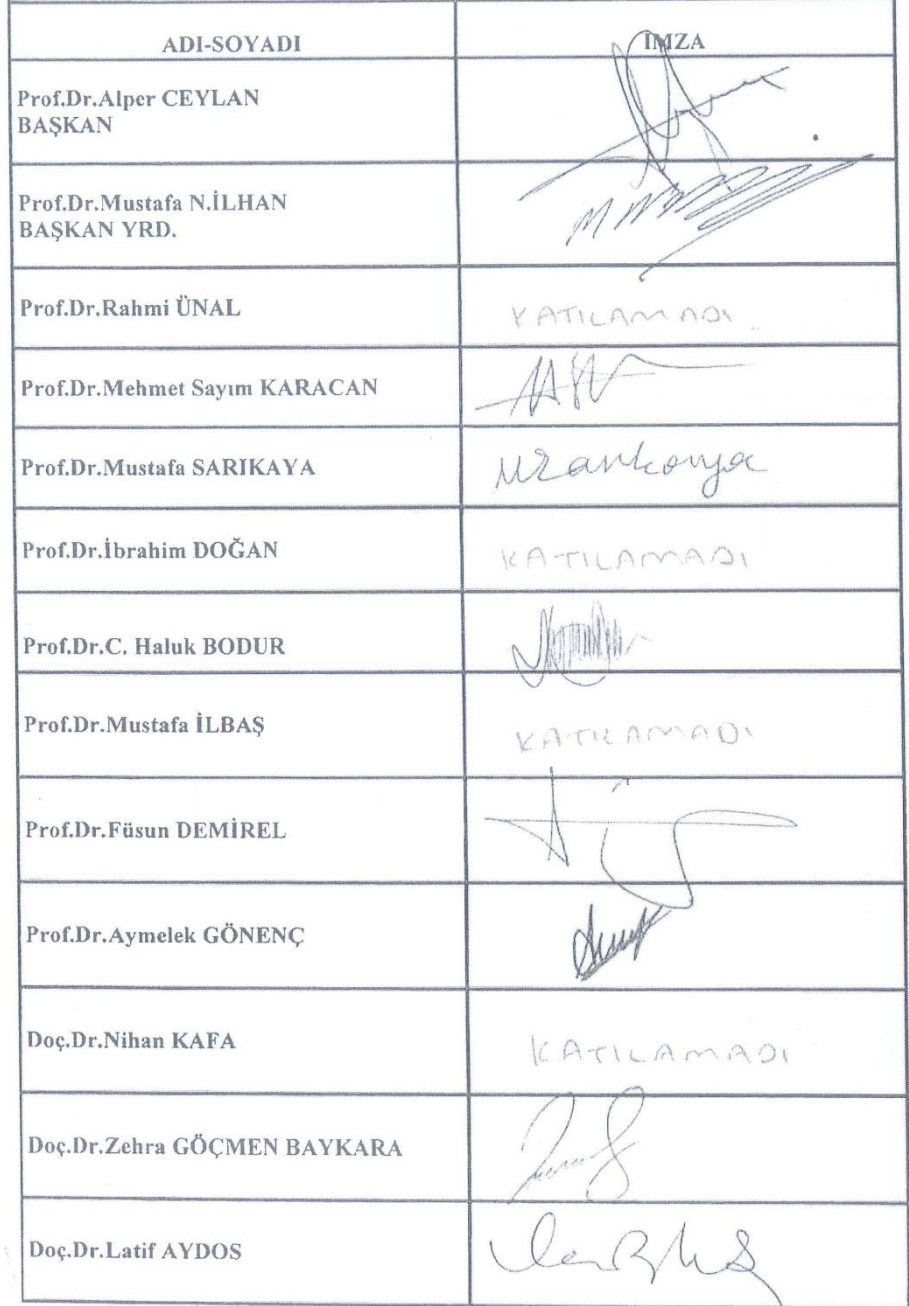 ADI-SOYADI İMZA
Prof.Dr.Alper CEYLAN
BAŞKAN
Prof.Dr.Mustafa N.İLHAN
BAŞKAN YRD.
Prof.Dr.Rahmi ÜNAL KATILAMADI
Prof.Dr.Mehmet Sayım KARACAN
Prof.Dr.Mustafa SARIKAYA
Prof.Dr.İbrahim DOĞAN KATILAMADI
Prof.Dr.C. Haluk BODUR
Prof.Dr.Mustafa İLBAŞ KATILAMADI
Prof.Dr.Füsun DEMİREL
Prof.Dr.Aymelek GÖNENÇ
Doç.Dr.Nihan KAFA KATILAMADI
Doç.Dr.Zehra GÖÇMEN BAYKARA
Doç.Dr.Latif AYDOS